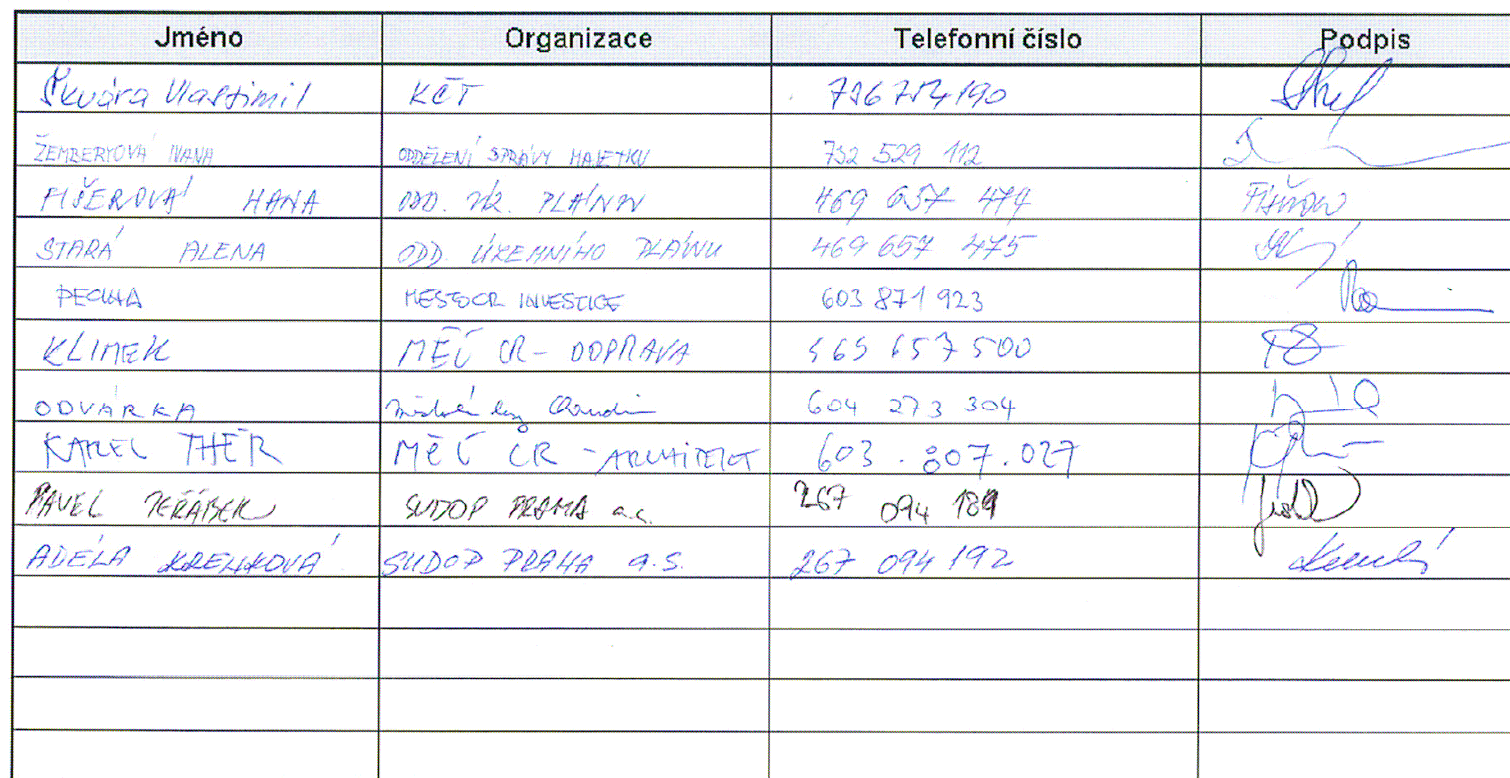 Jméno Organizace Telefonní číslo Podpis
Škvára Vlastimil KČT 736 714 190
ŽEMBERYOVÁ IVANA ODDĚLENÍ SPRÁVY MAJETKU 732 529 112
FIŠEROVÁ HANA ODD. PLÁNU 469 657 474
STARÁ ALENA ODD. ÚZEMNÍHO PLÁNU 469 657 475
PECINA INVESTICE 603 871 923
KLIMEK MĚÚ CR - DOPRAVA 569 657 500
ODVÁRKA 604 273 304
KAREL THÉR MĚÚ CR - ARCHITEKT 603.807.027
PAVEL JEŘÁBEK SUDOP PRAHA a.s. 267 094 189
ADÉLA KŘENKOVÁ SUDOP PRAHA a.s. 267 094 192